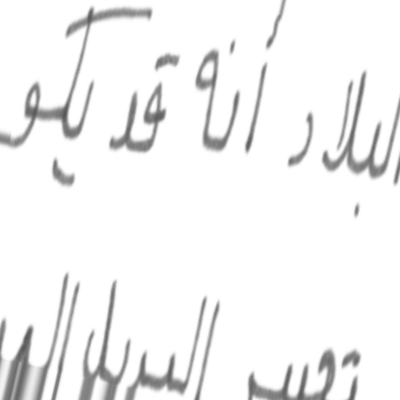 البلاد أنه قد يكو
تعيير البديل الم